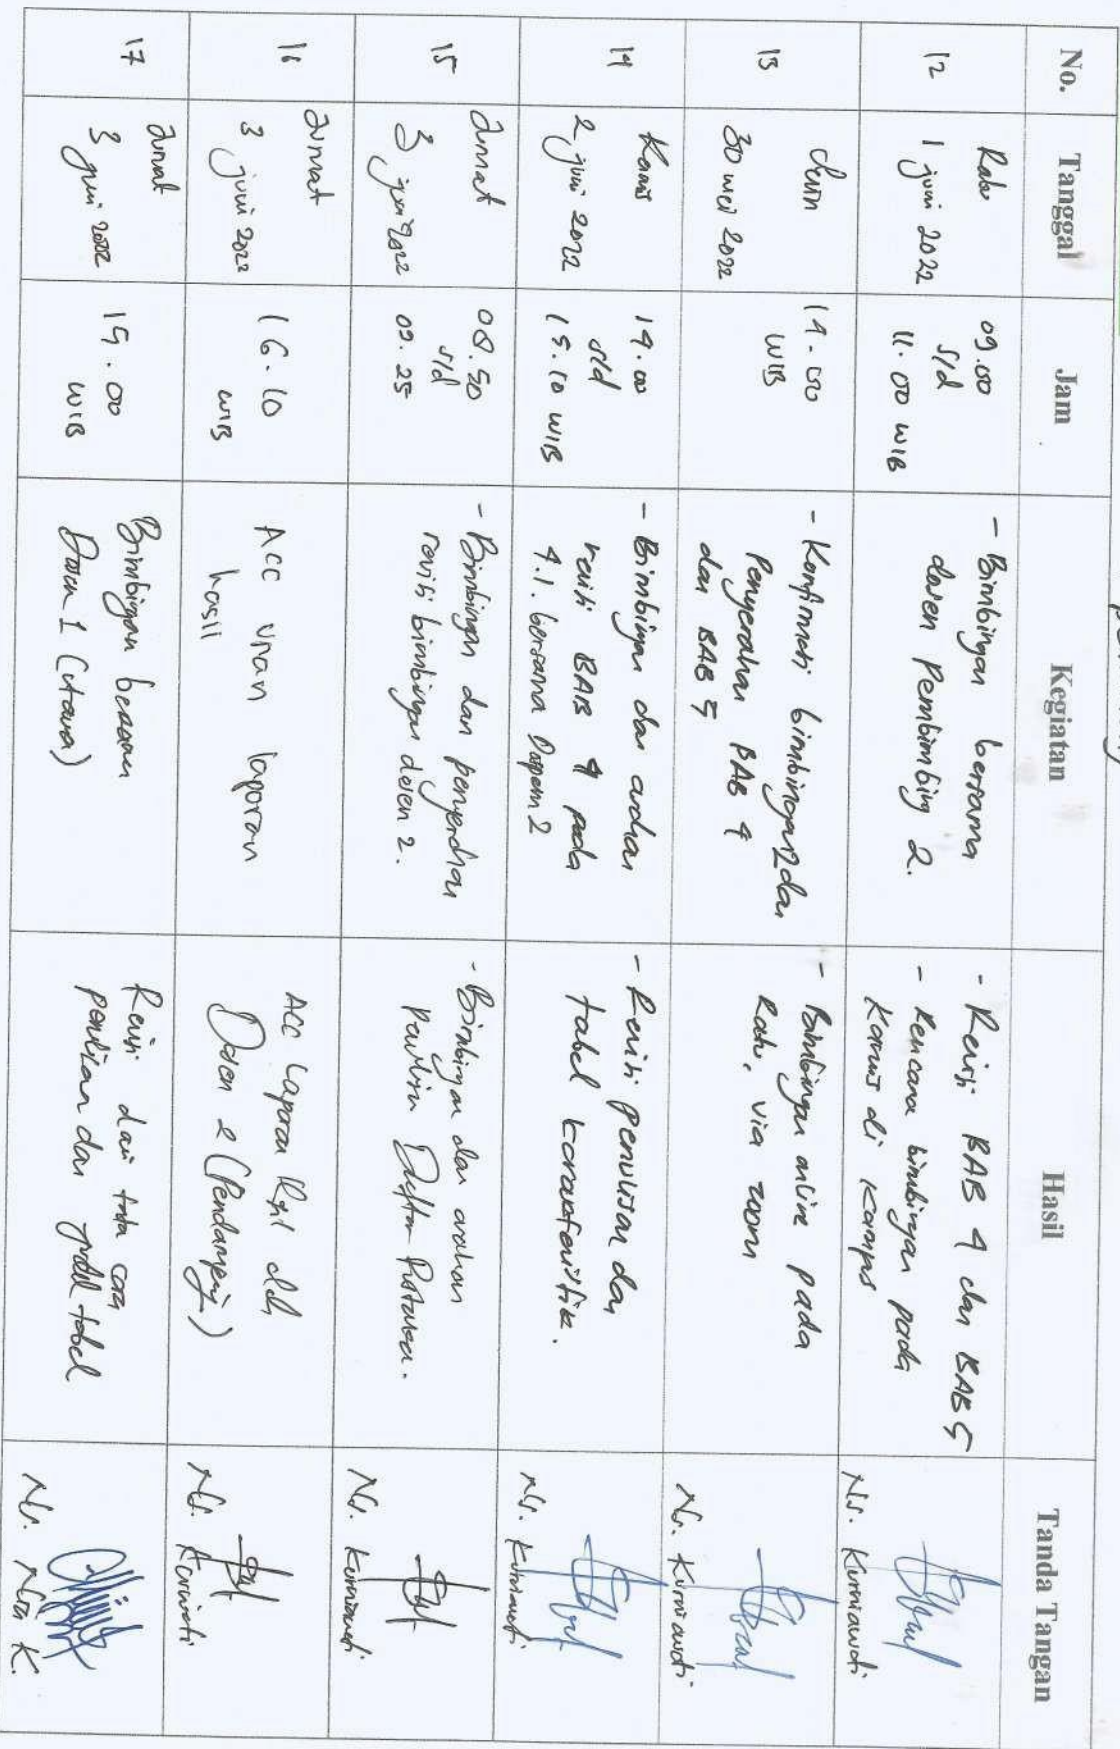 No. Tanggal Jam Kegiatan Hasil Tanda Tangan
12
Rabu
1 juni 2022
09.00
s/d
11.00 WIB
- Bimbingan bersama
dosen Pembimbing 2.
- Revisi BAB 4 dan BAB 5
- Rencana bimbingan pada
Kamis di Kampus
Ns. Kurniawati
13
Senin
30 mei 2022
14.00
WIB
- Konfirmasi bimbingan 2 dan
Penyerahan BAB 4
dan BAB 5
- Bimbingan online pada
Rabu, via zoom
Ns. Kurniawati
14
Kamis
2 juni 2022
14.00
s/d
15.10 WIB
- Bimbingan dan arahan
revisi BAB 4 pada
4.1. bersama Dospem 2
- Revisi penulisan dan
tabel karakteristik.
Ns. Kurniawati
15
Jumat
3 juni 2022
08.50
s/d
09.25
- Bimbingan dan penyerahan
revisi bimbingan dosen 2.
- Bimbingan dan arahan
Daftar Pustaka.
Ns. Kurniawati
16
Jumat
3 juni 2022
16.10
WIB
ACC laporan
hasil
ACC Laporan Hasil oleh
Dosen 2 (Pendamping)
Ns. Kurniawati
17
Jumat
3 juni 2022
19.00
WIB
Bimbingan bersama
Dosen 1 (Utama)
Revisi dari tata cara
penulisan dan tabel
Ns. Nia K.